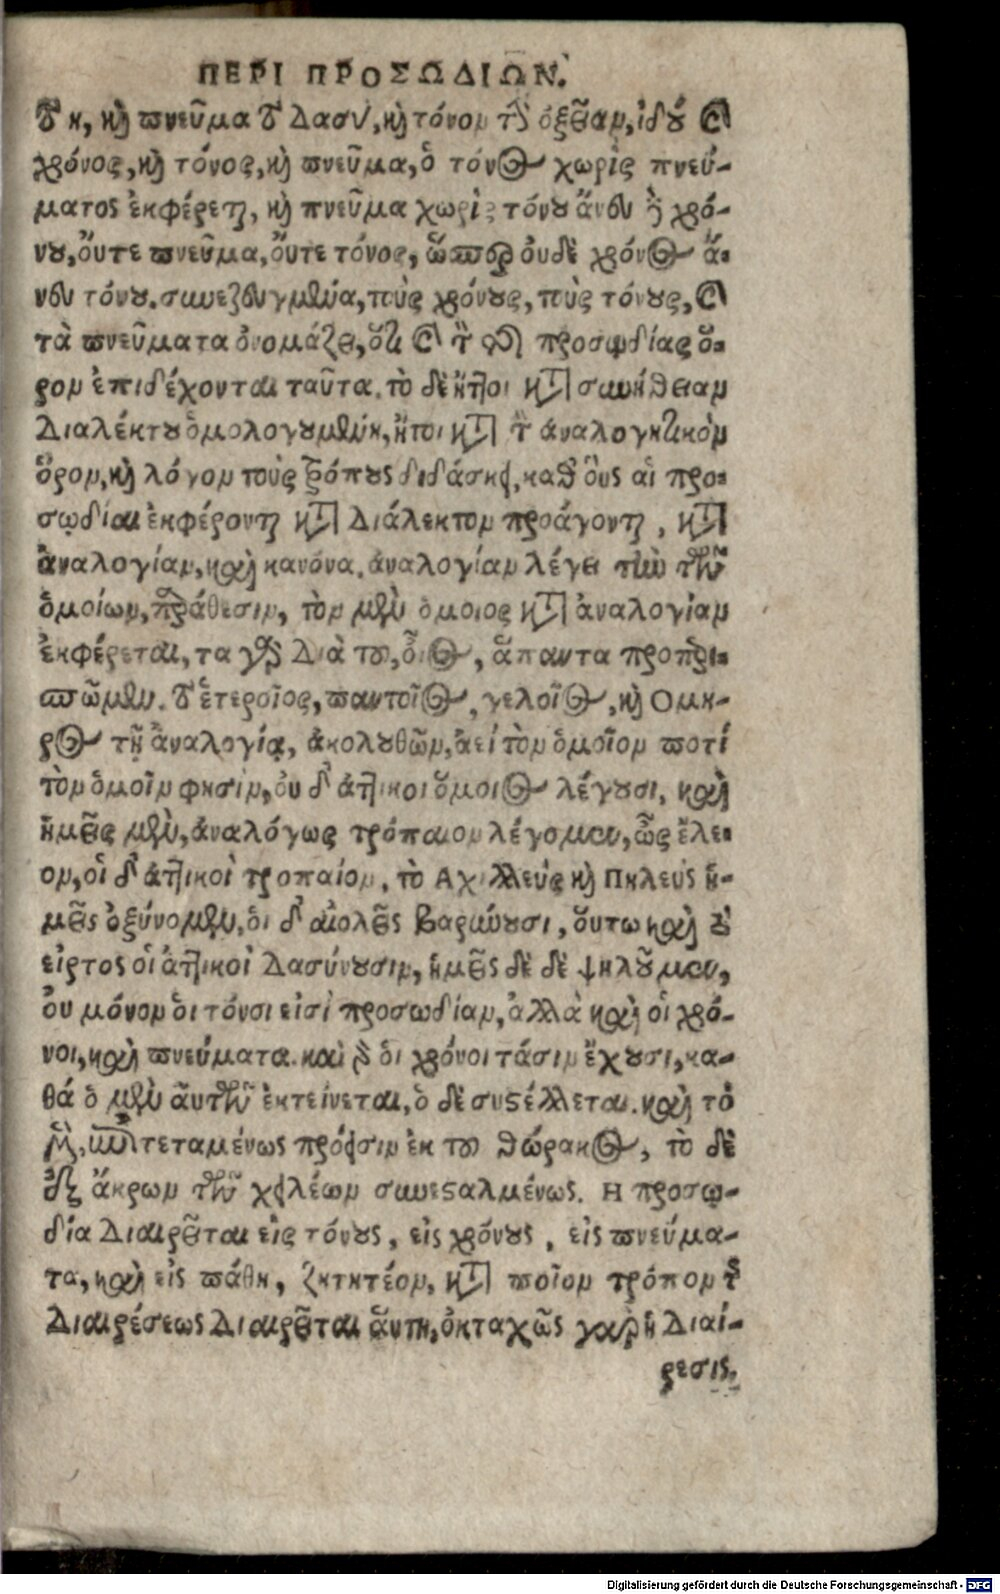 ΠΕΡΙ ΠΡΟΣΩΔΙΩΝ.
τὸ η, καὶ πνεῦμα τὸ δασὺ, καὶ τόνον τὴν ὀξεῖαν, ἰδοὺ καὶ
χρόνος, καὶ τόνος, καὶ πνεῦμα, ὁ τόνος χωρὶς πνεύ-
ματος ἐκφέρεται, καὶ πνεῦμα χωρὶς τόνου ἄνευ δὲ χρό-
νου, ὄυτε πνεῦμα, ὄυτε τόνος, ὥσπερ ὀυδὲ χρόνος ἄ-
νευ τόνου. συνεζευγμένα, τοὺς χρόνους, τοὺς τόνους, καὶ
τὰ πνεύματα ὀνομάζει, ὅτι καὶ τὸν τῆς προσῳδίας ὅ-
ρον ἐπιδέχονται ταῦτα. τὸ δὲ ἤτοι κατὰ συνήθειαν
Διαλέκτου ὁμολογουμένην, ἤτοι κατὰ τὸν ἀναλογητικὸν
ὅρον, καὶ λόγον τοὺς τρόπους διδάσκει, καθ' οὓς αἱ προ-
σῳδίαι ἐκφέρονται κατὰ Διάλεκτον προάγονται, κατὰ
ἀναλογίαν, καὶ κανόνα. ἀναλογίαν λέγει τὴν τῶν
ὁμοίων, παράθεσιν, τὸν μὲν ὁμοιος κατὰ ἀναλογίαν
ἐκφέρεται, τα γὰρ Διὰ του, οἷος, ἅπαντα προπερι-
σπῶμεν. τὸ ἑτεροῖος, παντοῖος, γελοῖος, καὶ Ομη-
ρος τῇ ἀναλογίᾳ, ἀκολουθῶν, ἀεί τὸν ὁμοῖον ποτί
τὸν ὁμοῖν φησίν, ὀυ δ' ἀττικοι ὅμοιος λέγουσι, καὶ
ἡμεῖς μὲν, ἀναλόγως τρόπαιον λέγομεν, ὡς ἔλε-
ον, οἱ δ' ἀττικοὶ τροπαίον. τὸ Αχιλλεὺς καὶ Πηλεὺς ἡ-
μεῖς ὀξύνομεν, ὁι δ' αἰολεῖς βαρύνουσι, ὅυτω καὶ τὸ
εἰρτος οἱ ἀττικοὶ Δασύνουσιν, ἡμεῖς δὲ δὲ ψιλοῦμεν,
ὀυ μόνον ὁι τόνοι εἰσὶ προσωδίαν, ἀλλὰ καὶ οἱ χρό-
νοι, καὶ πνεύματα. καὶ γὰρ ὁι χρόνοι τάσιν ἔχουσι, κα-
θά ὁ μὲν ἀυτῶν ἐκτείνεται, ὁ δὲ συστέλλεται. καὶ τὸ
μὲν, ἐπιτεταμένως πρόεισιν ἐκ του θώρακος, τὸ δὲ
ἐξ ἄκρων τῶν χειλέων συνεσταλμένως. Η προσῳ-
δία Διαιρεῖται εἰς τόνους, εἰς χρόνους, εἰς πνεύμα-
τα, καὶ εἰς πάθη, ζητητέον, κατὰ ποῖον τρόπον τῆς
Διαιρέσεως Διαιρεῖται ἅυτη, ὀκταχῶς γὰρ ἡ Διαί-
ρεσις.
Digitalisierung gefördert durch die Deutsche Forschungsgemeinschaft - DFG